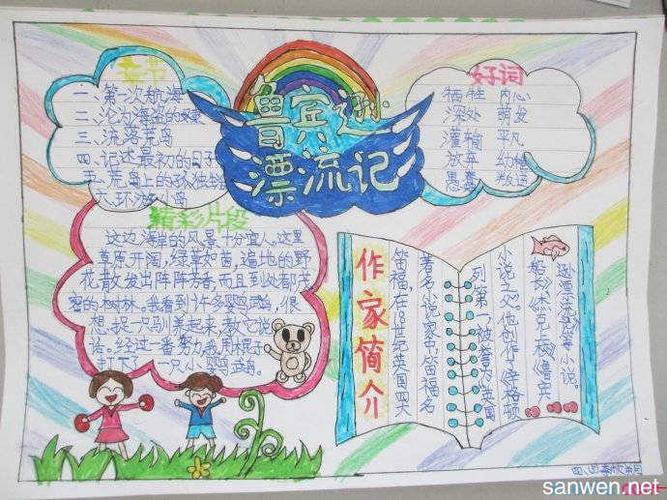 鲁宾逊
漂流记
章节
一、第一次航海
二、沦为海盗的
三、流落荒岛
四、记述最初的日子
五、荒岛上的孤独生
六、环游小岛
好词
牺牲 内心
深处 萌发
灌输 平凡
放弃 幼稚
愚蠢
精彩片段
这边海岸的风景十分宜人。这里
草原开阔，绿草如茵，遍地的野
花散发出阵阵芳香，而且到处都茂
密的树林。我看到许多鹦鹉，很
想捉一只驯养起来，教它说
话。经过一番努力，我用棍子
打下了一只小鹦鹉。
作家简介
笛福，在18世纪英国四大
著名小说家中，笛福名
列第一，被誉为英国
小说之父。他创作《辛格顿
船长》《杰克上校》《鲁宾
逊漂流记》等小说。
sanwen.net